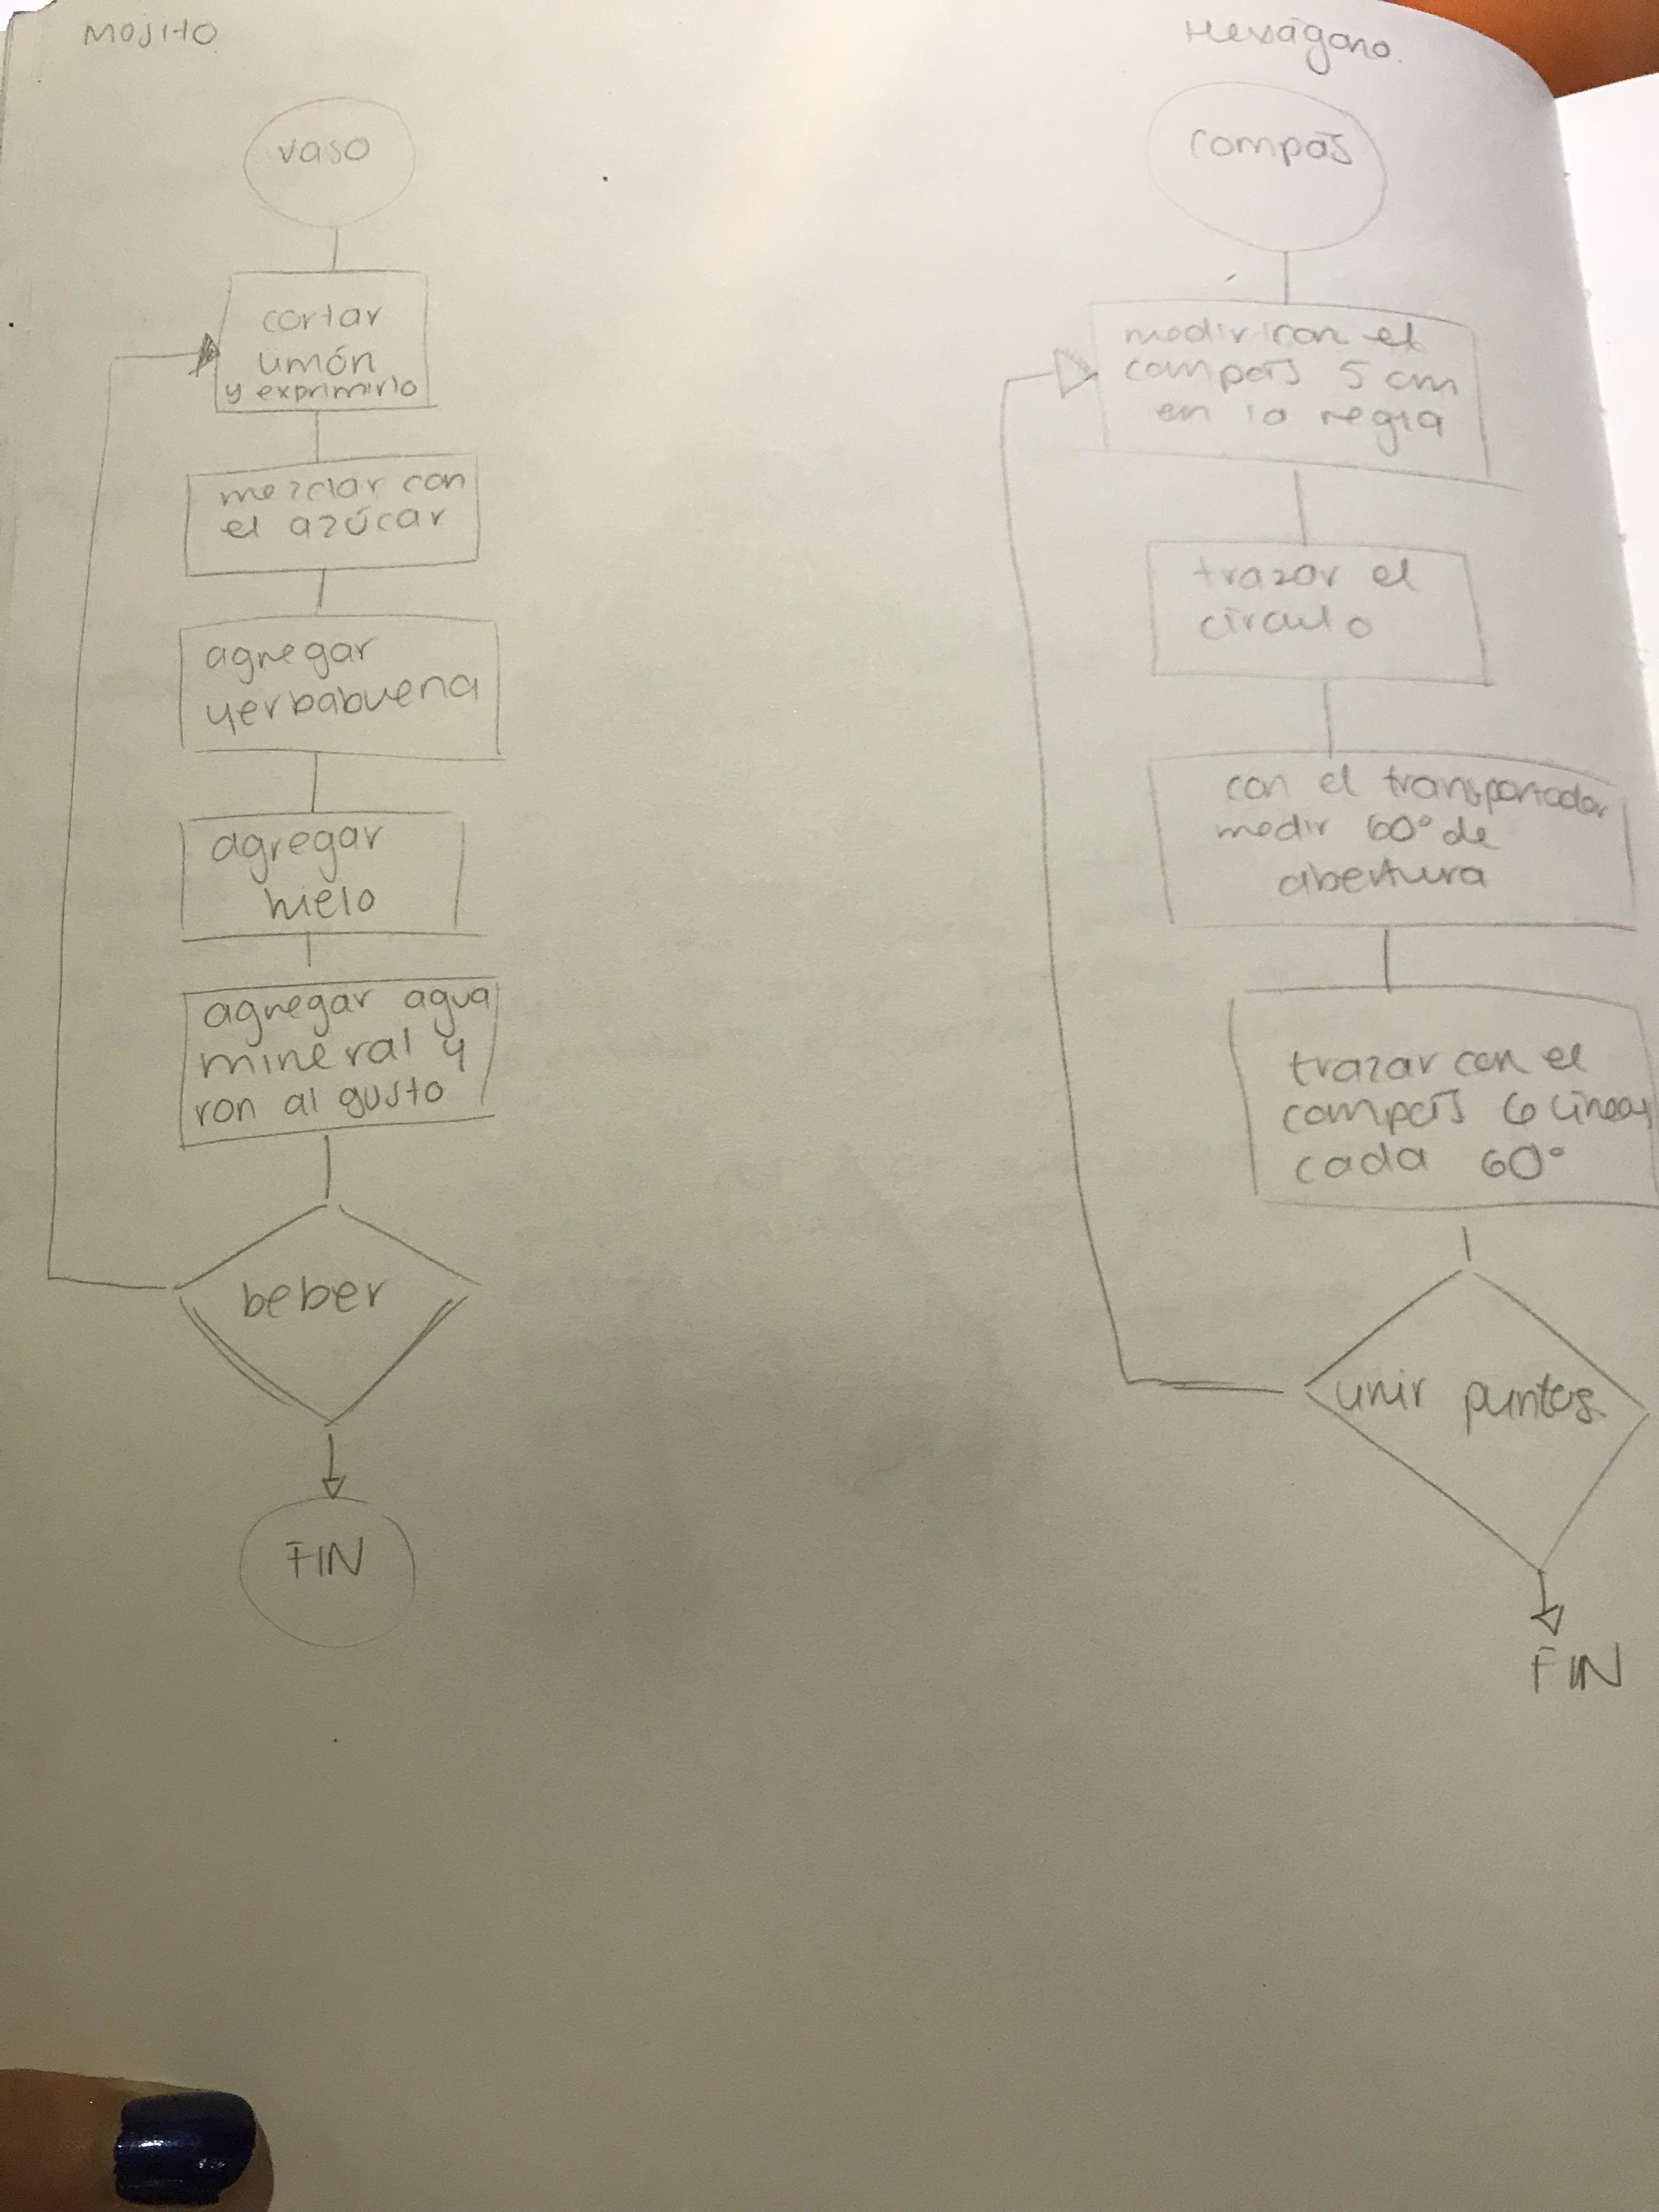 MOJITO
vaso
cortar
limón
y exprimirlo
mezclar con
el azúcar
agregar
yerbabuena
agregar
hielo
agregar agua
mineral y
ron al gusto
beber
FIN
Hexágono.
compás
medir con el
compás 5 cm
en la regla
trazar el
círculo
con el transportador
medir 60° de
abertura
trazar con el
compás 6 líneas
cada 60°
unir puntos.
FIN